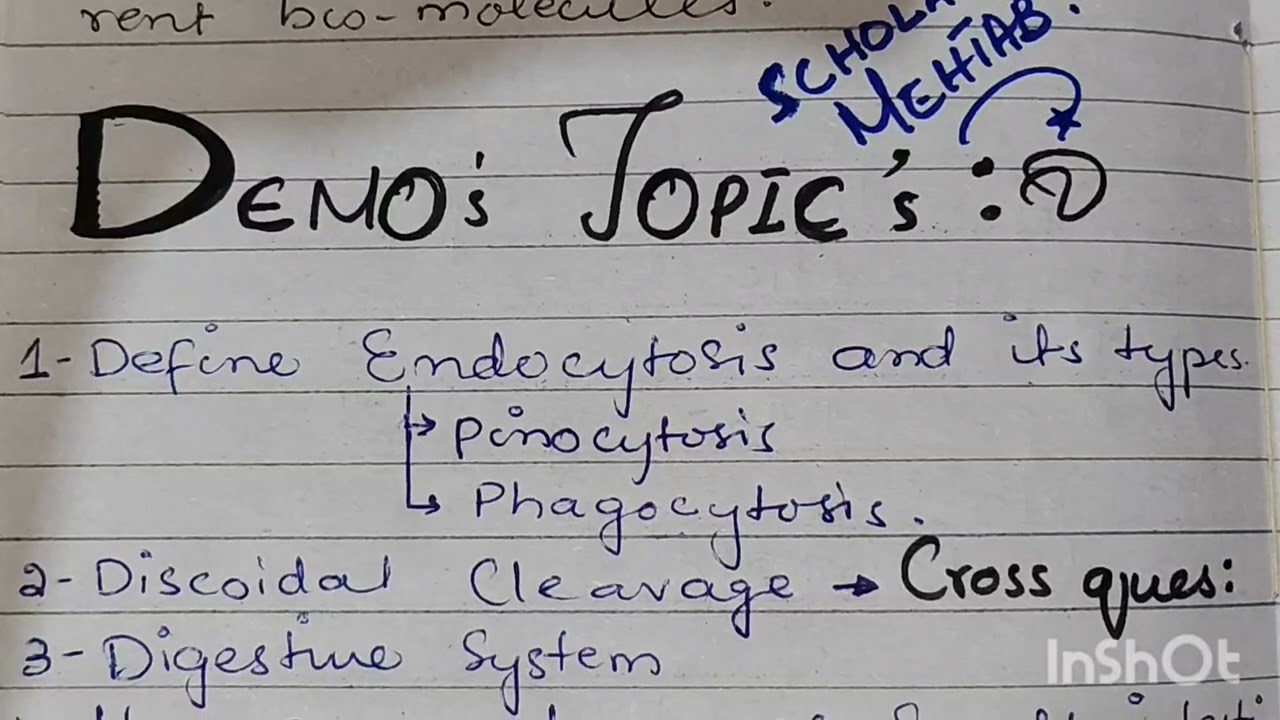 rent bio-molecules.
SCHOLA
MEHTAB.
DEMO's TOPIC's :
1- Define Endocytosis and its types.
→ Pinocytosis
→ Phagocytosis.
2- Discoidal Cleavage → Cross ques:
3- Digestive System
InShOt